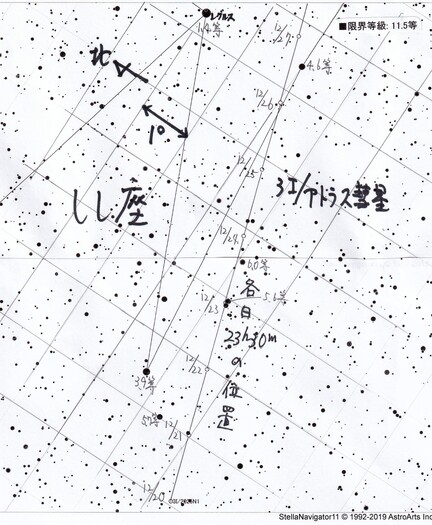 レグルス
1.4等
■限界等級: 11.5等
12/27
北
4.6等
12/26
1°
12/25
3I/アトラス彗星
しし座
12/24
6.0等
5.6等
12/23
各日
23h30m
の
位
置
12/22
3.9等
5.7等
12/21
12/20
C0I/2025N1
StellaNavigator11 © 1992-2019 AstroArts Inc